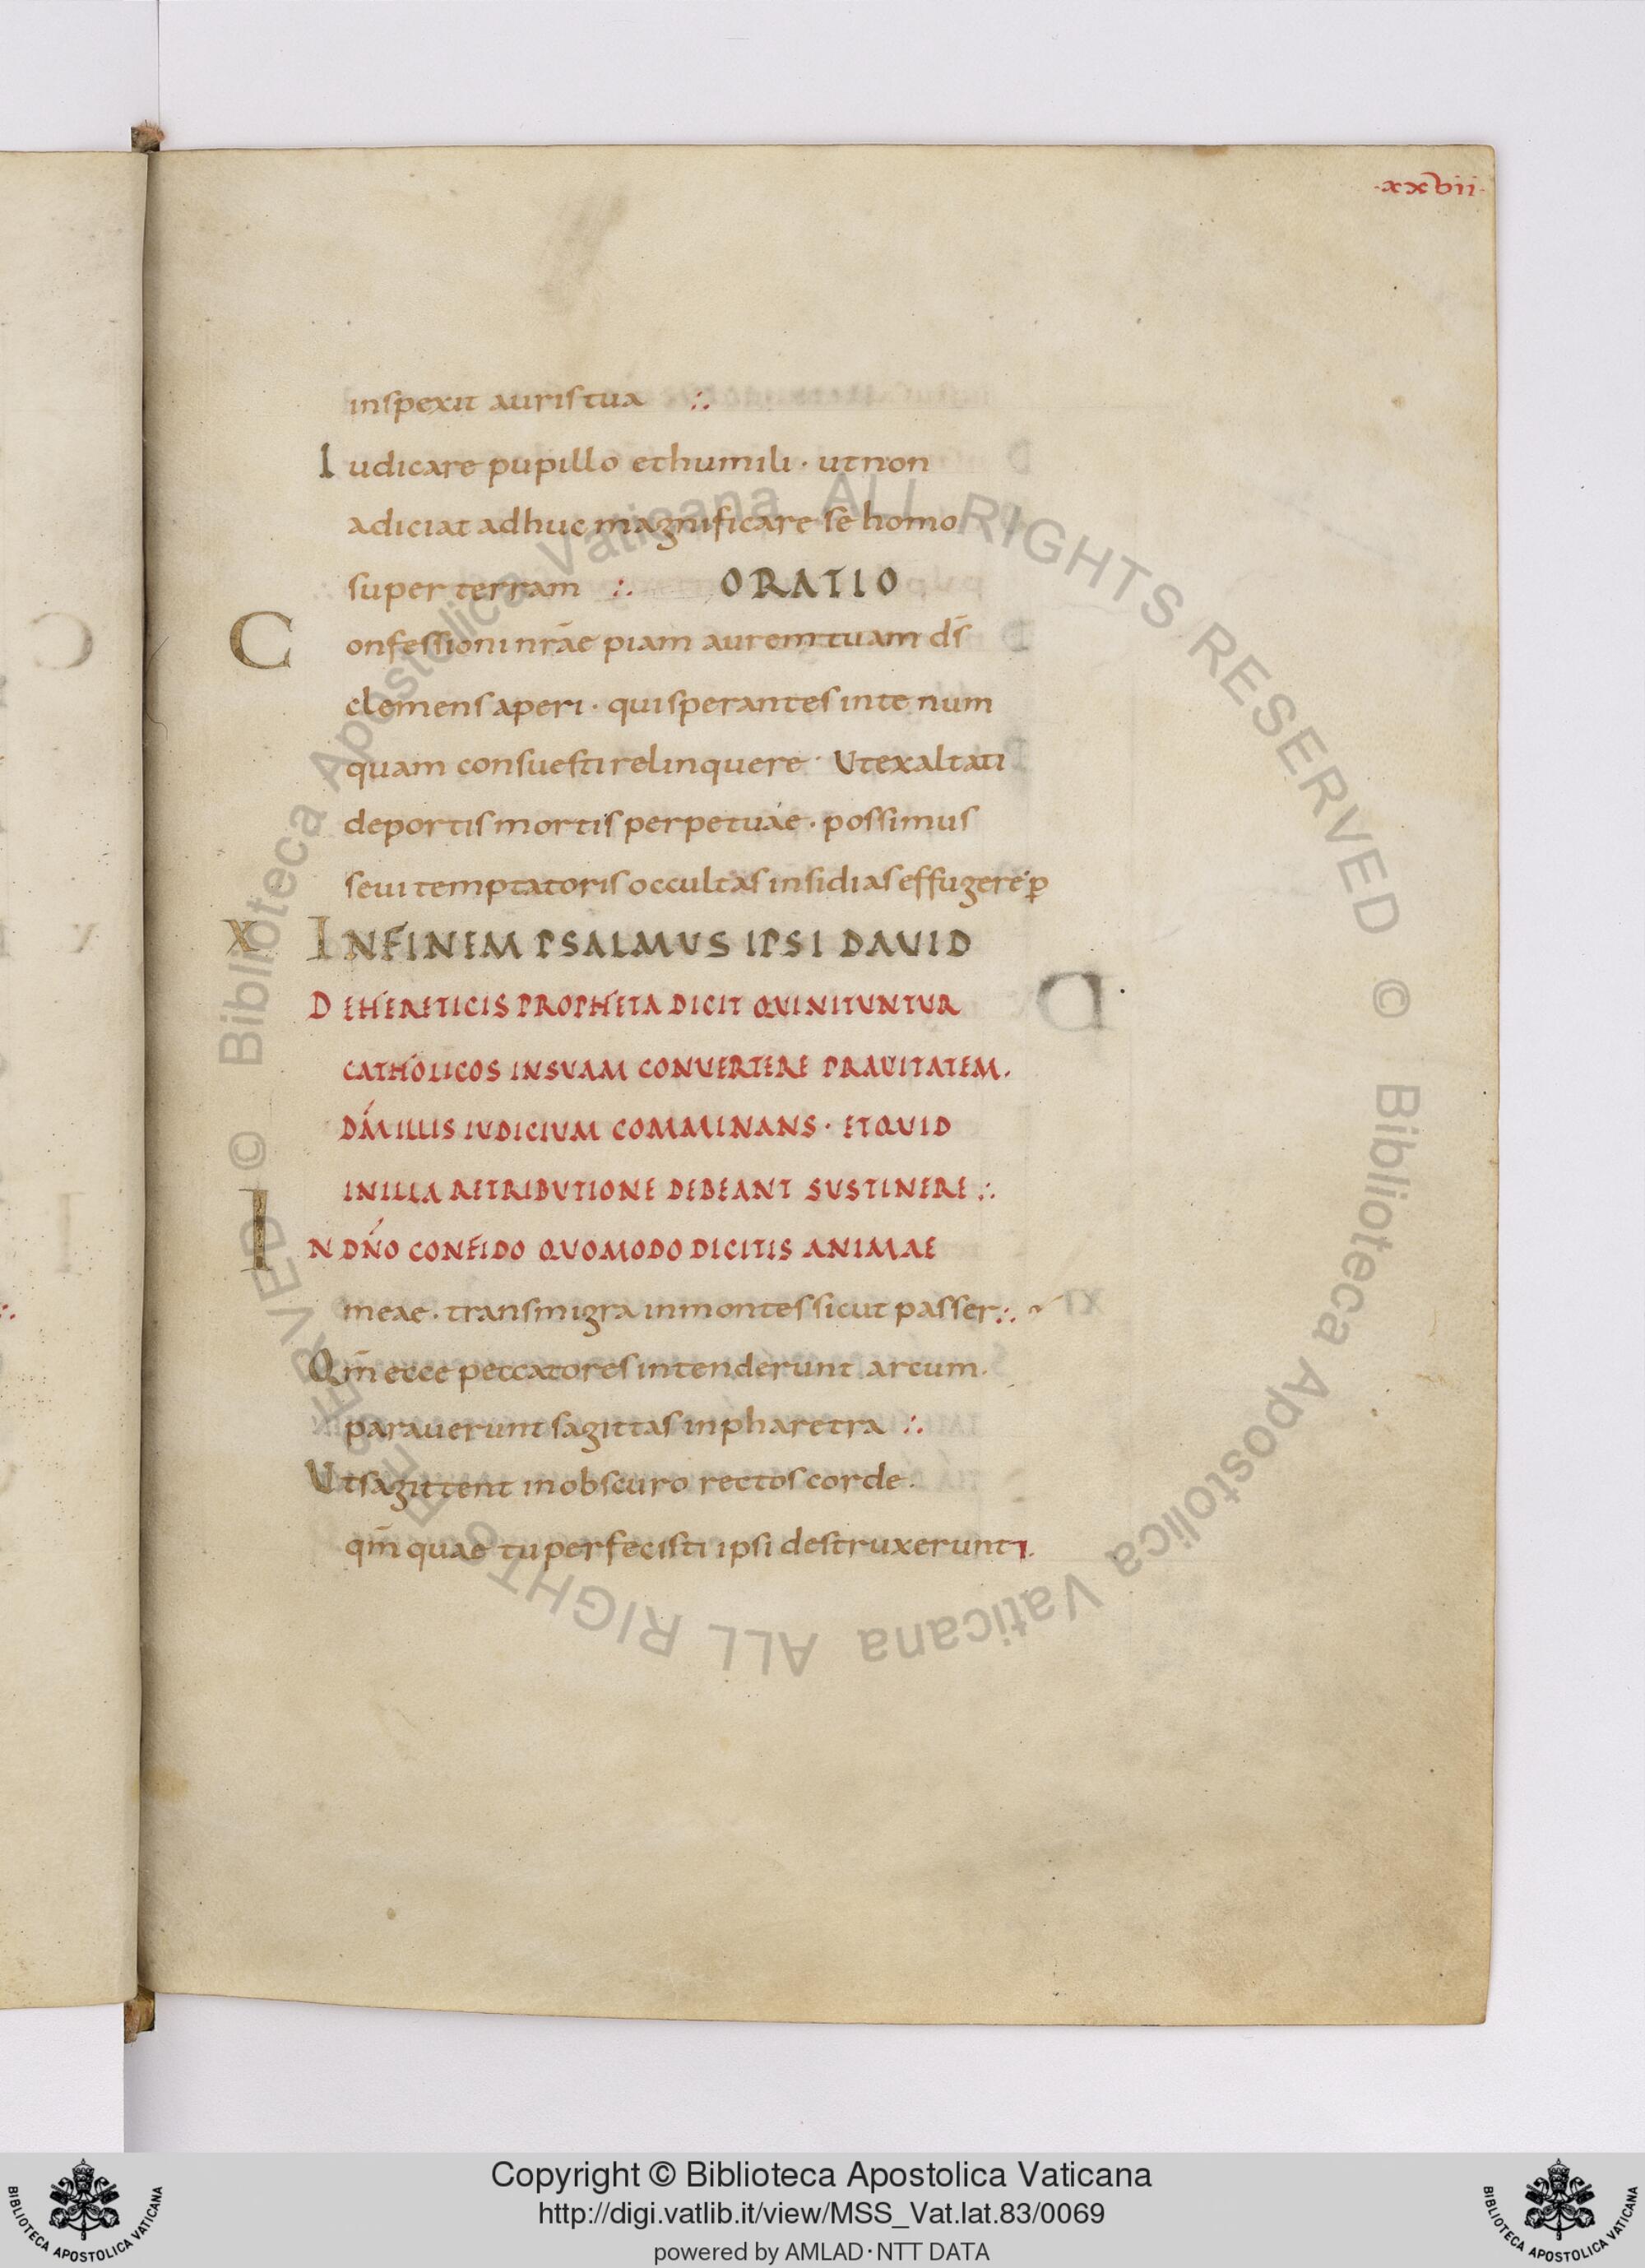 ·xxvii·
inspexit auris tua :.
Iudicare pupillo et humili · ut non
adiciat adhuc magnificare se homo
super terram :. ORATIO
Confessioni nr̄ae piam aurem tuam ds̄
clemens aperi · qui sperantes in te num
quam consuesti relinquere · Ut exaltati
de portis mortis perpetuae · possimus
seui temptatoris occultas insidias effugere · p̲
X IN FINEM PSALMUS IPSI DAVID
DE HERETICIS PROPHETA DICIT QUI NITUNTUR
CATHOLICOS IN SUAM CONVERTERE PRAVITATEM.
DM̄ ILLIS IUDICIUM COMMINANS · ET QUID
IN ILLA RETRIBUTIONE DEBEANT SUSTINERE :.
IN DN̄O CONFIDO QUOMODO DICITIS ANIMAE
meae · transmigra in montes sicut passer :.
Qm̄ ecce peccatores intenderunt arcum.
parauerunt sagittas in pharetra :.
Ut sagittent in obscuro rectos corde.
qm̄ quae tu perfecisti ipsi destruxerunt
© Biblioteca Apostolica Vaticana ALL RIGHTS RESERVED © Biblioteca Apostolica Vaticana ALL RIGHTS RESERVED
BIBLIOTECA APOSTOLICA VATICANA
Copyright © Biblioteca Apostolica Vaticana
http://digi.vatlib.it/view/MSS_Vat.lat.83/0069
powered by AMLAD·NTT DATA
BIBLIOTECA APOSTOLICA VATICANA